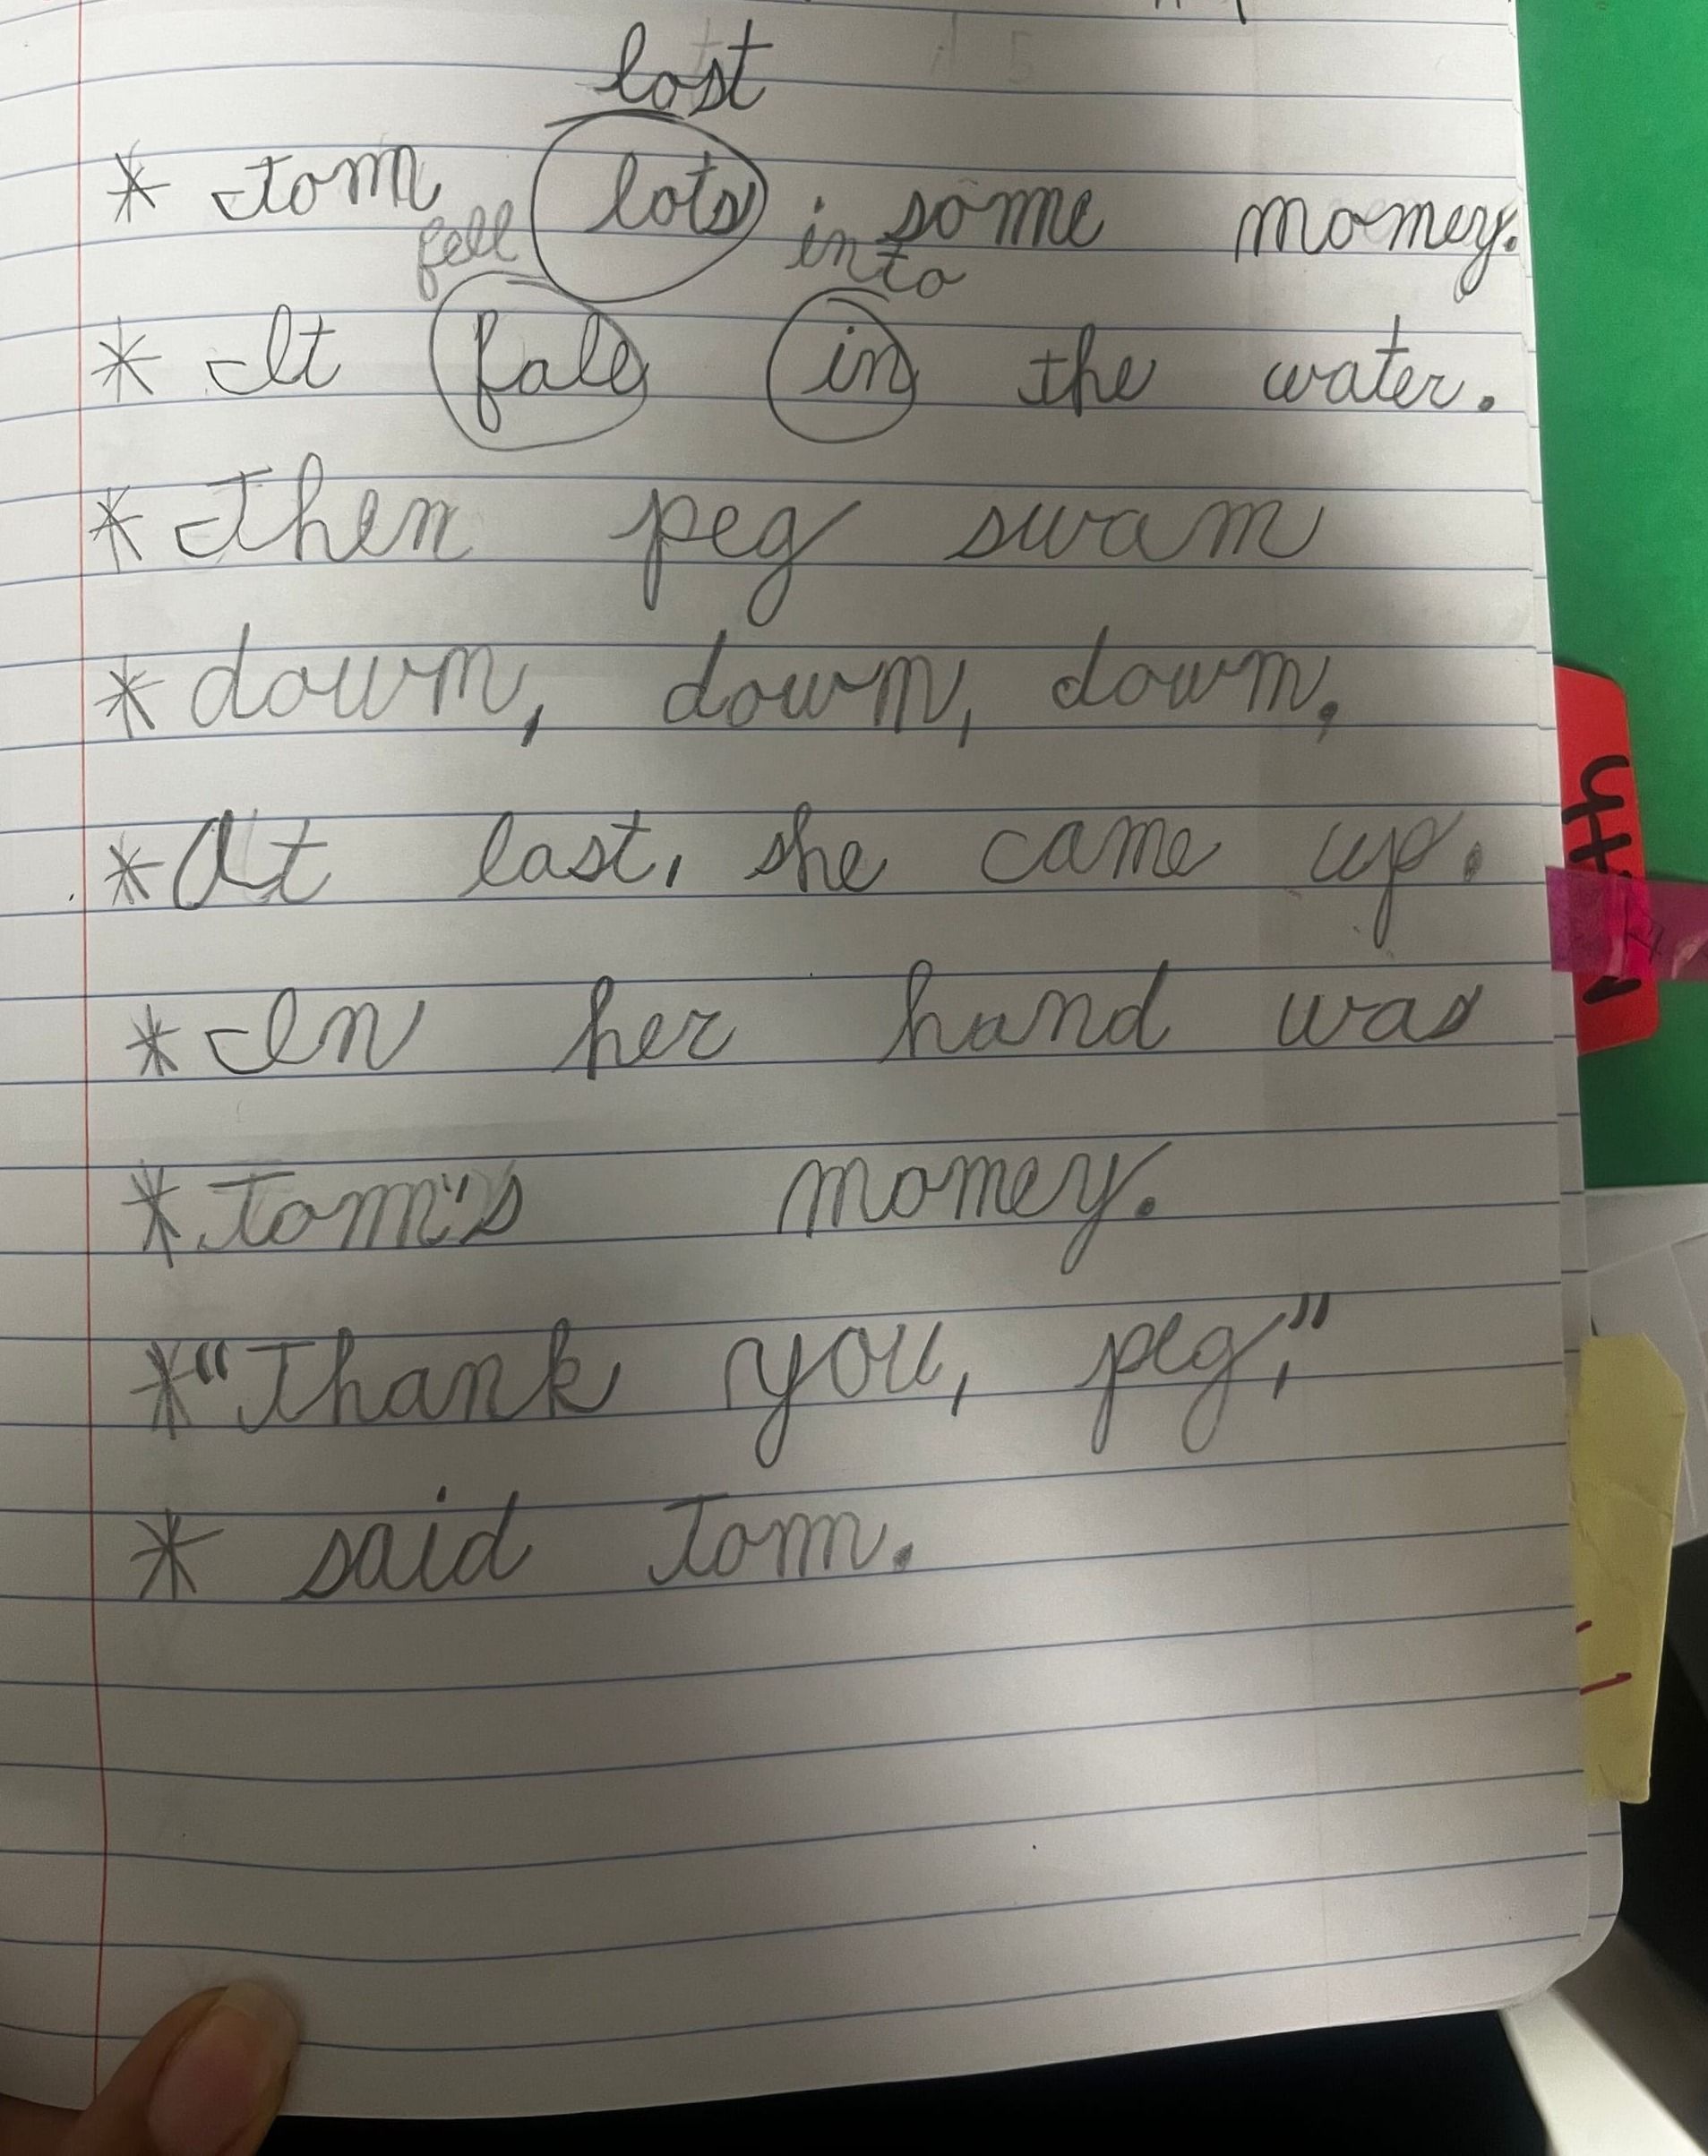 lost
* Tom lots some momey.
fell into
* It fale in the water.
* Then peg swam
* down, down, down.
* At last, she came up.
* In her hand was
* Tom's momey.
* "Thank you, peg,"
* said Tom.